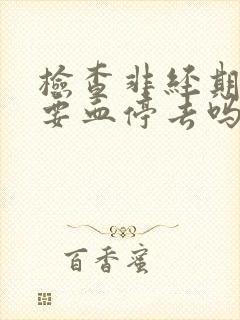 檢查非經期
要血停去吗
百香蜜